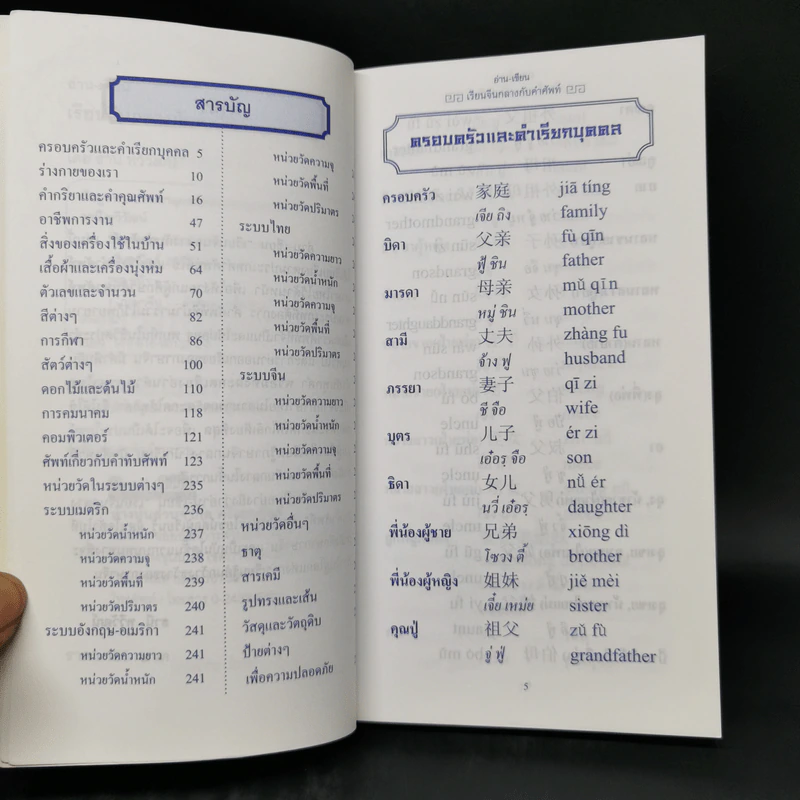 สารบัญ
ครอบครัวและคำเรียกบุคคล 5
ร่างกายของเรา 10
คำกริยาและคำคุณศัพท์ 16
อาชีพการงาน 47
สิ่งของเครื่องใช้ในบ้าน 51
เสื้อผ้าและเครื่องนุ่งห่ม 64
ตัวเลขและจำนวน 70
สีต่างๆ 82
การกีฬา 86
สัตว์ต่างๆ 100
ดอกไม้และต้นไม้ 110
การคมนาคม 118
คอมพิวเตอร์ 121
ศัพท์เกี่ยวกับคำทับศัพท์ 123
หน่วยวัดในระบบต่างๆ 235
ระบบเมตริก 236
หน่วยวัดน้ำหนัก 237
หน่วยวัดความจุ 238
หน่วยวัดพื้นที่ 239
หน่วยวัดปริมาตร 240
ระบบอังกฤษ-อเมริกา 241
หน่วยวัดความยาว 241
หน่วยวัดน้ำหนัก 241
หน่วยวัดความจุ
หน่วยวัดพื้นที่
หน่วยวัดปริมาตร
ระบบไทย
หน่วยวัดความยาว
หน่วยวัดน้ำหนัก
หน่วยวัดความจุ
หน่วยวัดพื้นที่
หน่วยวัดปริมาตร
ระบบจีน
หน่วยวัดความยาว
หน่วยวัดน้ำหนัก
หน่วยวัดความจุ
หน่วยวัดพื้นที่
หน่วยวัดปริมาตร
หน่วยวัดอื่นๆ
ธาตุ
สารเคมี
รูปทรงและเส้น
วัสดุและวัตถุดิบ
ป้ายต่างๆ
เพื่อความปลอดภัย
อ่าน-เขียน
เรียนจีนกลางกับคำศัพท์
ครอบครัวและคำเรียกบุคคล
ครอบครัว 家庭 jiā tíng
เจีย ถิง family
บิดา 父亲 fù qīn
ฟู่ ชิน father
มารดา 母亲 mǔ qīn
หมู่ ชิน mother
สามี 丈夫 zhàng fu
จ้าง ฟู husband
ภรรยา 妻子 qī zi
ชี จือ wife
บุตร 儿子 ér zi
เอ๋อรฺ จือ son
ธิดา 女儿 nǚ ér
นวี่ เอ๋อรฺ daughter
พี่น้องผู้ชาย 兄弟 xiōng dì
โซวง ตี้ brother
พี่น้องผู้หญิง 姐妹 jiě mèi
เจี่ย เหม่ย sister
คุณปู่ 祖父 zǔ fù
จู่ ฟู่ grandfather
5